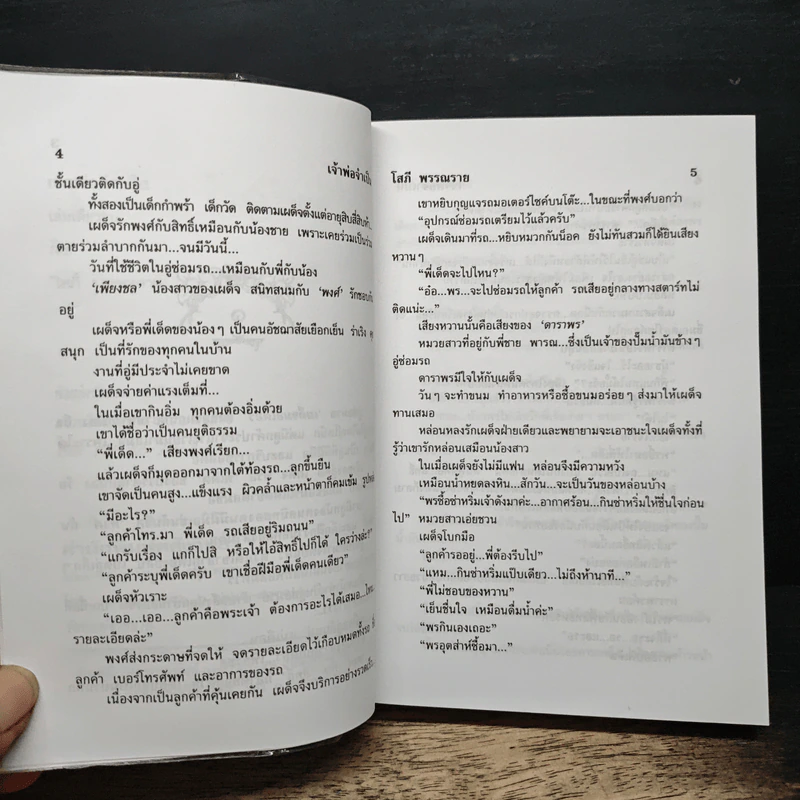 4
เจ้าพ่อจำเป็น
ชั้นเดียวติดกับอู่
ทั้งสองเป็นเด็กกำพร้า เด็กวัด ติดตามเผด็จตั้งแต่อายุสิบสี่สิบห้า...
เผด็จรักพงศ์กับสิทธิ์เหมือนกับน้องชาย เพราะเคยร่วมเป็นร่วม
ตายร่วมลำบากกันมา...จนมีวันนี้...
วันที่ใช้ชีวิตในอู่ซ่อมรถ...เหมือนกับพี่กับน้อง
‘เพียงชล’ น้องสาวของเผด็จ สนิทสนมกับ ‘พงศ์’ รักชอบกัน
อยู่
เผด็จหรือพี่เด็ดของน้องๆ เป็นคนอัชฌาสัยเยือกเย็น ร่าเริง
สนุก เป็นที่รักของทุกคนในบ้าน
งานที่อู่มีประจำไม่เคยขาด
เผด็จจ่ายค่าแรงเต็มที่...
ในเมื่อเขากินอิ่ม ทุกคนต้องอิ่มด้วย
เขาได้ชื่อว่าเป็นคนยุติธรรม
“พี่เด็ด...” เสียงพงศ์เรียก...
แล้วเผด็จก็มุดออกมาจากใต้ท้องรถ...ลุกขึ้นยืน
เขาจัดเป็นคนสูง...แข็งแรง ผิวคล้ำและหน้าตาก็คมเข้ม
“มีอะไร?”
“ลูกค้าโทร.มา พี่เด็ด รถเสียอยู่ริมถนน”
“แกรับเรื่อง แกก็ไปสิ หรือให้ไอ้สิทธิ์ไปก็ได้ ใครว่างล่ะ?”
“ลูกค้าระบุพี่เด็ดครับ เขาเชื่อฝีมือพี่เด็ดคนเดียว”
เผด็จหัวเราะ
“เออ...เออ...ลูกค้าคือพระเจ้า ต้องการอะไรได้เสมอ...ไหน
รายละเอียดล่ะ”
พงศ์ส่งกระดาษที่จดให้ จดรายละเอียดไว้เกือบหมดทั้งรถ
ลูกค้า เบอร์โทรศัพท์ และอาการของรถ
เนื่องจากเป็นลูกค้าที่คุ้นเคยกัน เผด็จจึงบริการอย่างรวดเร็ว
โสภี พรรณราย
5
เขาหยิบกุญแจรถมอเตอร์ไซค์บนโต๊ะ...ในขณะที่พงศ์บอกว่า
“อุปกรณ์ซ่อมรถเตรียมไว้แล้วครับ”
เผด็จเดินมาที่รถ...หยิบหมวกกันน็อค ยังไม่ทันสวมก็ได้ยินเสียง
หวานๆ
“พี่เด็ดจะไปไหน?”
“อ๋อ...พร...จะไปซ่อมรถให้ลูกค้า รถเสียอยู่กลางทางสตาร์ทไม่
ติดน่ะ...”
เสียงหวานนั้นคือเสียงของ ‘ดาราพร’
หมวยสาวที่อยู่กับพี่ชาย พารณ...ซึ่งเป็นเจ้าของปั๊มน้ำมันข้างๆ
อู่ซ่อมรถ
ดาราพรมีใจให้กับเผด็จ
วันๆ จะทำขนม ทำอาหารหรือซื้อขนมอร่อยๆ ส่งมาให้เผด็จ
ทานเสมอ
หล่อนหลงรักเผด็จฝ่ายเดียวและพยายามจะเอาชนะใจเผด็จทั้งที่
รู้ว่าเขารักหล่อนเสมือนน้องสาว
ในเมื่อเผด็จยังไม่มีแฟน หล่อนจึงมีความหวัง
เหมือนน้ำหยดลงหิน...สักวัน...จะเป็นวันของหล่อนบ้าง
“พรซื้อซ่าหริ่มเจ้าดังมาค่ะ...อากาศร้อน...กินซ่าหริ่มให้ชื่นใจก่อน
ไป” หมวยสาวเอ่ยชวน
เผด็จโบกมือ
“ลูกค้ารออยู่...พี่ต้องรีบไป”
“แหม...กินซ่าหริ่มแป๊บเดียว...ไม่ถึงห้านาที...”
“พี่ไม่ชอบของหวาน”
“เย็นชื่นใจ เหมือนดื่มน้ำค่ะ”
“พรกินเองเถอะ”
“พรอุตส่าห์ซื้อมา...”